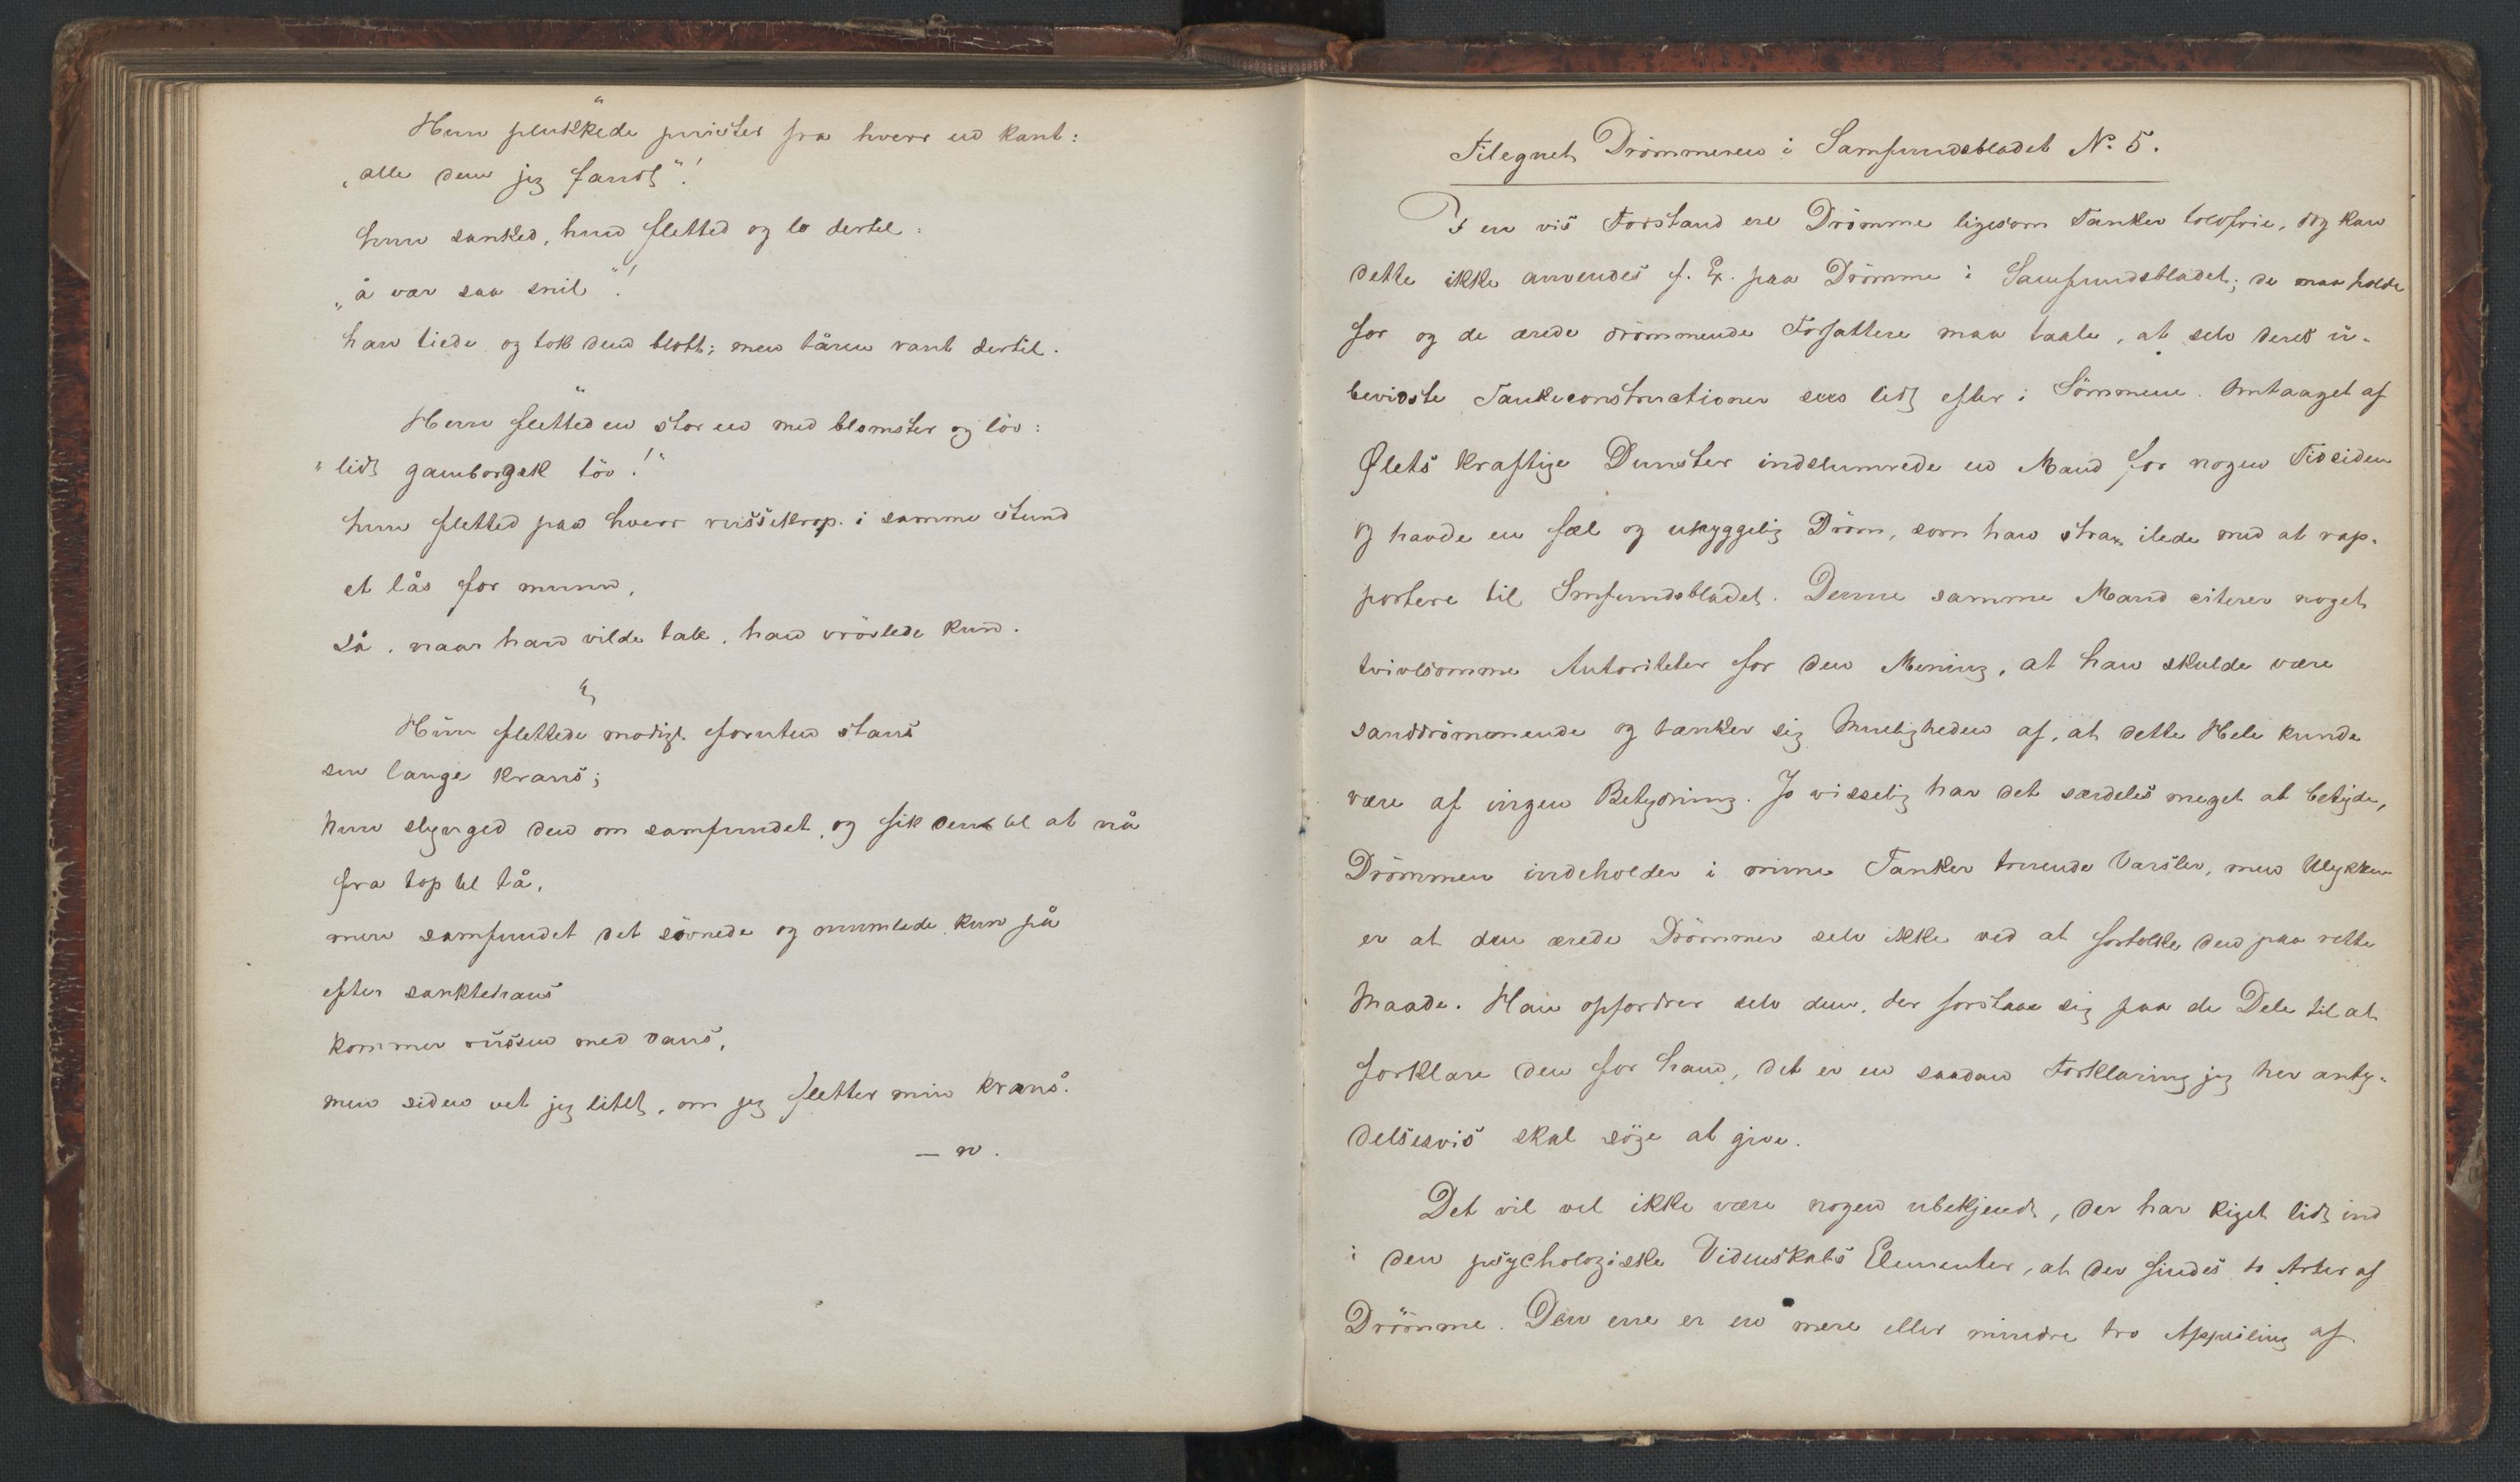 Hun plukkede prister fra hver en kant:
„alle dem jeg fandt"!
hun sanked, hun fletted og lo dertil:
„å vær saa snil"!
han tiede og tok dem blott; men tåren rant dertil.
Hun fletted en stor en med blomster og löv:
"lidt gamborgsk töv!"
hun fletted paa hver russekrop i samme stund
et lås for munn,
så, naar han vilde tale, han vrövlede kun.
Hun flettede modigt foruten stans
sin lange krans;
hun slynged den om samfundet, og fik den til at nå
fra top til tå,
men samfundet det sövnede og mumlede kun på
efter sanktehans
kommer russen med dans,
men siden vet jeg litet, om jeg fletter min krans.
— n.
Tilegnet Drömmeren i Samfundsbladet No. 5.
I en vis Forstand ere Drömme ligesom Tanker toldfrie, dog kan
dette ikke anvendes f. Ex. paa Drömme i Samfundsbladet; de maa holde
for og de ærede drömmende Forfattere maa taale, at selv deres u-
bevidste Tankeconstructioner sees lidt efter i Sömmene. Omtaaget af
Ølets kraftige Dunster indslumrede en Mand for nogen Tid siden
og havde en fæl og uhyggelig Dröm, som han strax ilede med at rap-
portere til Smfundsbladet. Denne samme Mand citerer noget
tvivlsomme Autoriteter for den Mening, at han skulde være
sanddrömmende og tænker sig Muligheden af, at dette Hele kunde
være af ingen Betydning. Jo visselig har det særdeles meget at betyde,
Drömmen indeholder i mine Tanker truende Varsler, men Ulykken
er at den ærede Drömmer selv ikke ved at fortolke den paa rette
Maade. Han opfordrer selv dem, der forstaae sig paa de Dele til at
forklare den for ham, det er en saadan Forklaring jeg her anty-
delsesvis skal söge at give.
Det vil vel ikke være nogen ubekjendt, der har kiget lidt ind
i den psychologiske Videnskabs Elementer, at der findes to Arter af
Drömme. Den ene er en mere eller mindre tro Afspeiling af